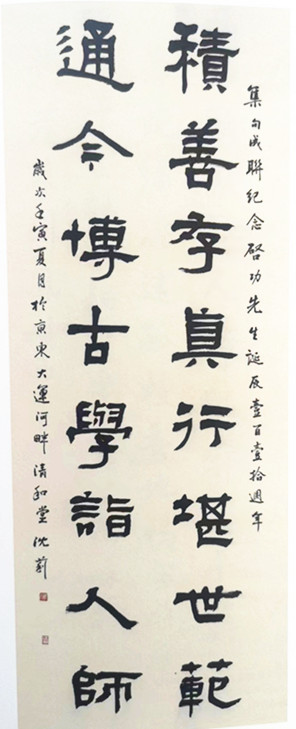 集句成聯紀念啓功先生誕辰壹百壹拾週年
積善存真行堪世範
通今博古學詣人師
歲次壬寅夏月於京東大運河畔清和堂沈莿